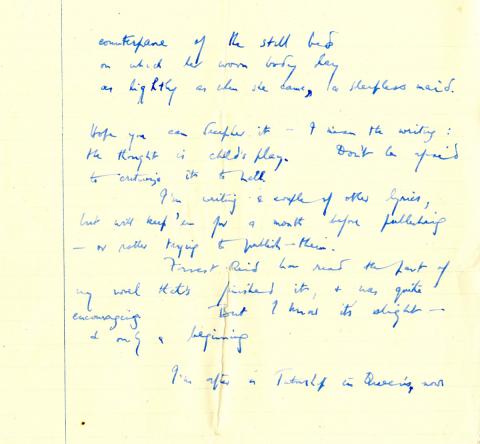 counterpane of the still bed
on which her worn body lay
as lightly as when she came, a sleepless maid.
Hope you can decipher it — I mean the writing:
the thought is child's play. Don't be afraid
to criticize it to hell.
I'm writing a couple of other lyrics,
but will keep 'em for a month before publishing
— or rather trying to publish — them.
Forrest Reid has read the part of
my novel that's finished it, & was quite
encouraging. But I know it's slight —
& only a beginning
I'm after a Tutorship in Queen's, now